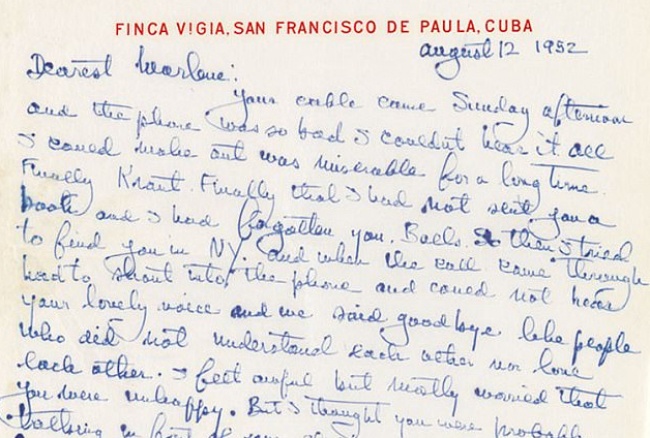 FINCA V!GIA, SAN FRANCISCO DE PAULA, CUBA
august 12 1952
Dearest Marlene:
your cable came Sunday afternoon
and the phone was so bad I couldnt hear it. all
I could make out was miserable for a long time.
Finally Kraut. Finally that I had not sent you a
book and I had forgotten you. Balls. So then I tried
to find you in NY. and when the call came through
had to shout into the phone and could not hear
your lovely voice and we said goodbye like people
who did not understand each other nor love
each other. I felt awful but mostly worried that
you were unhappy. But I thought you were probably
in front of